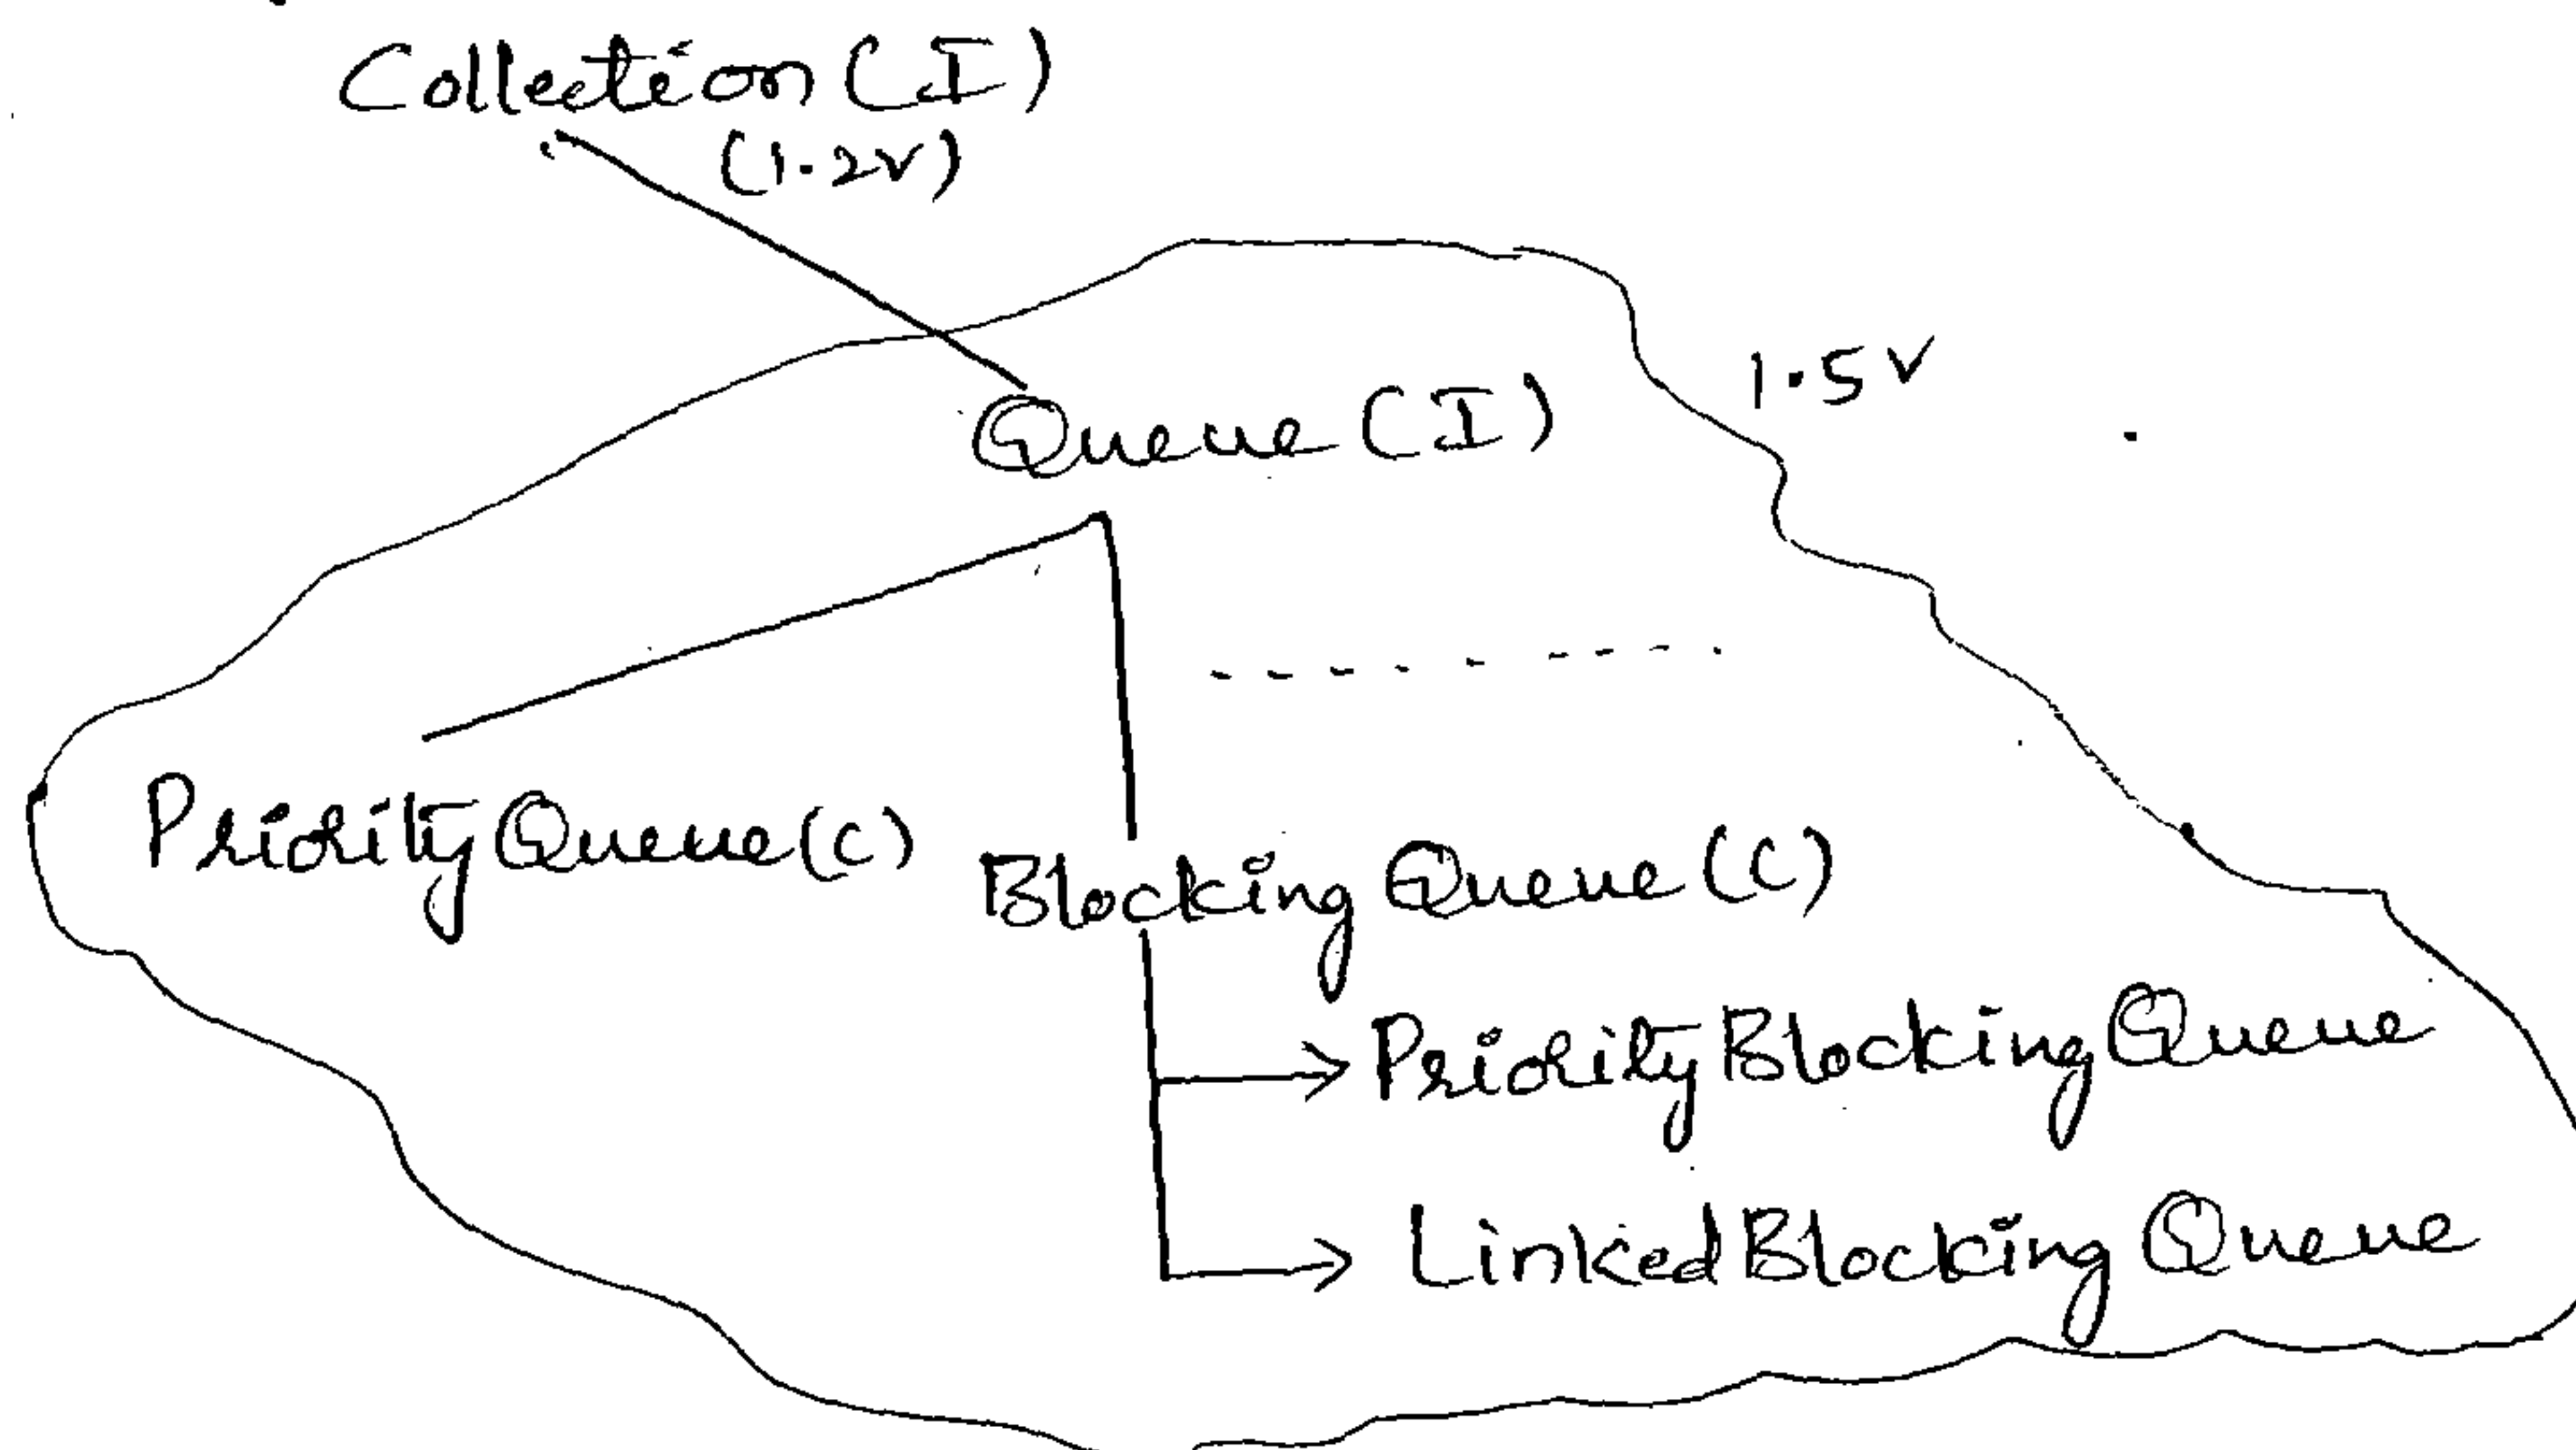 Collection (I)
(1.2v)
Queue (I)
1.5v
PriorityQueue(c)
Blocking Queue (C)
PriorityBlockingQueue
LinkedBlocking Queue